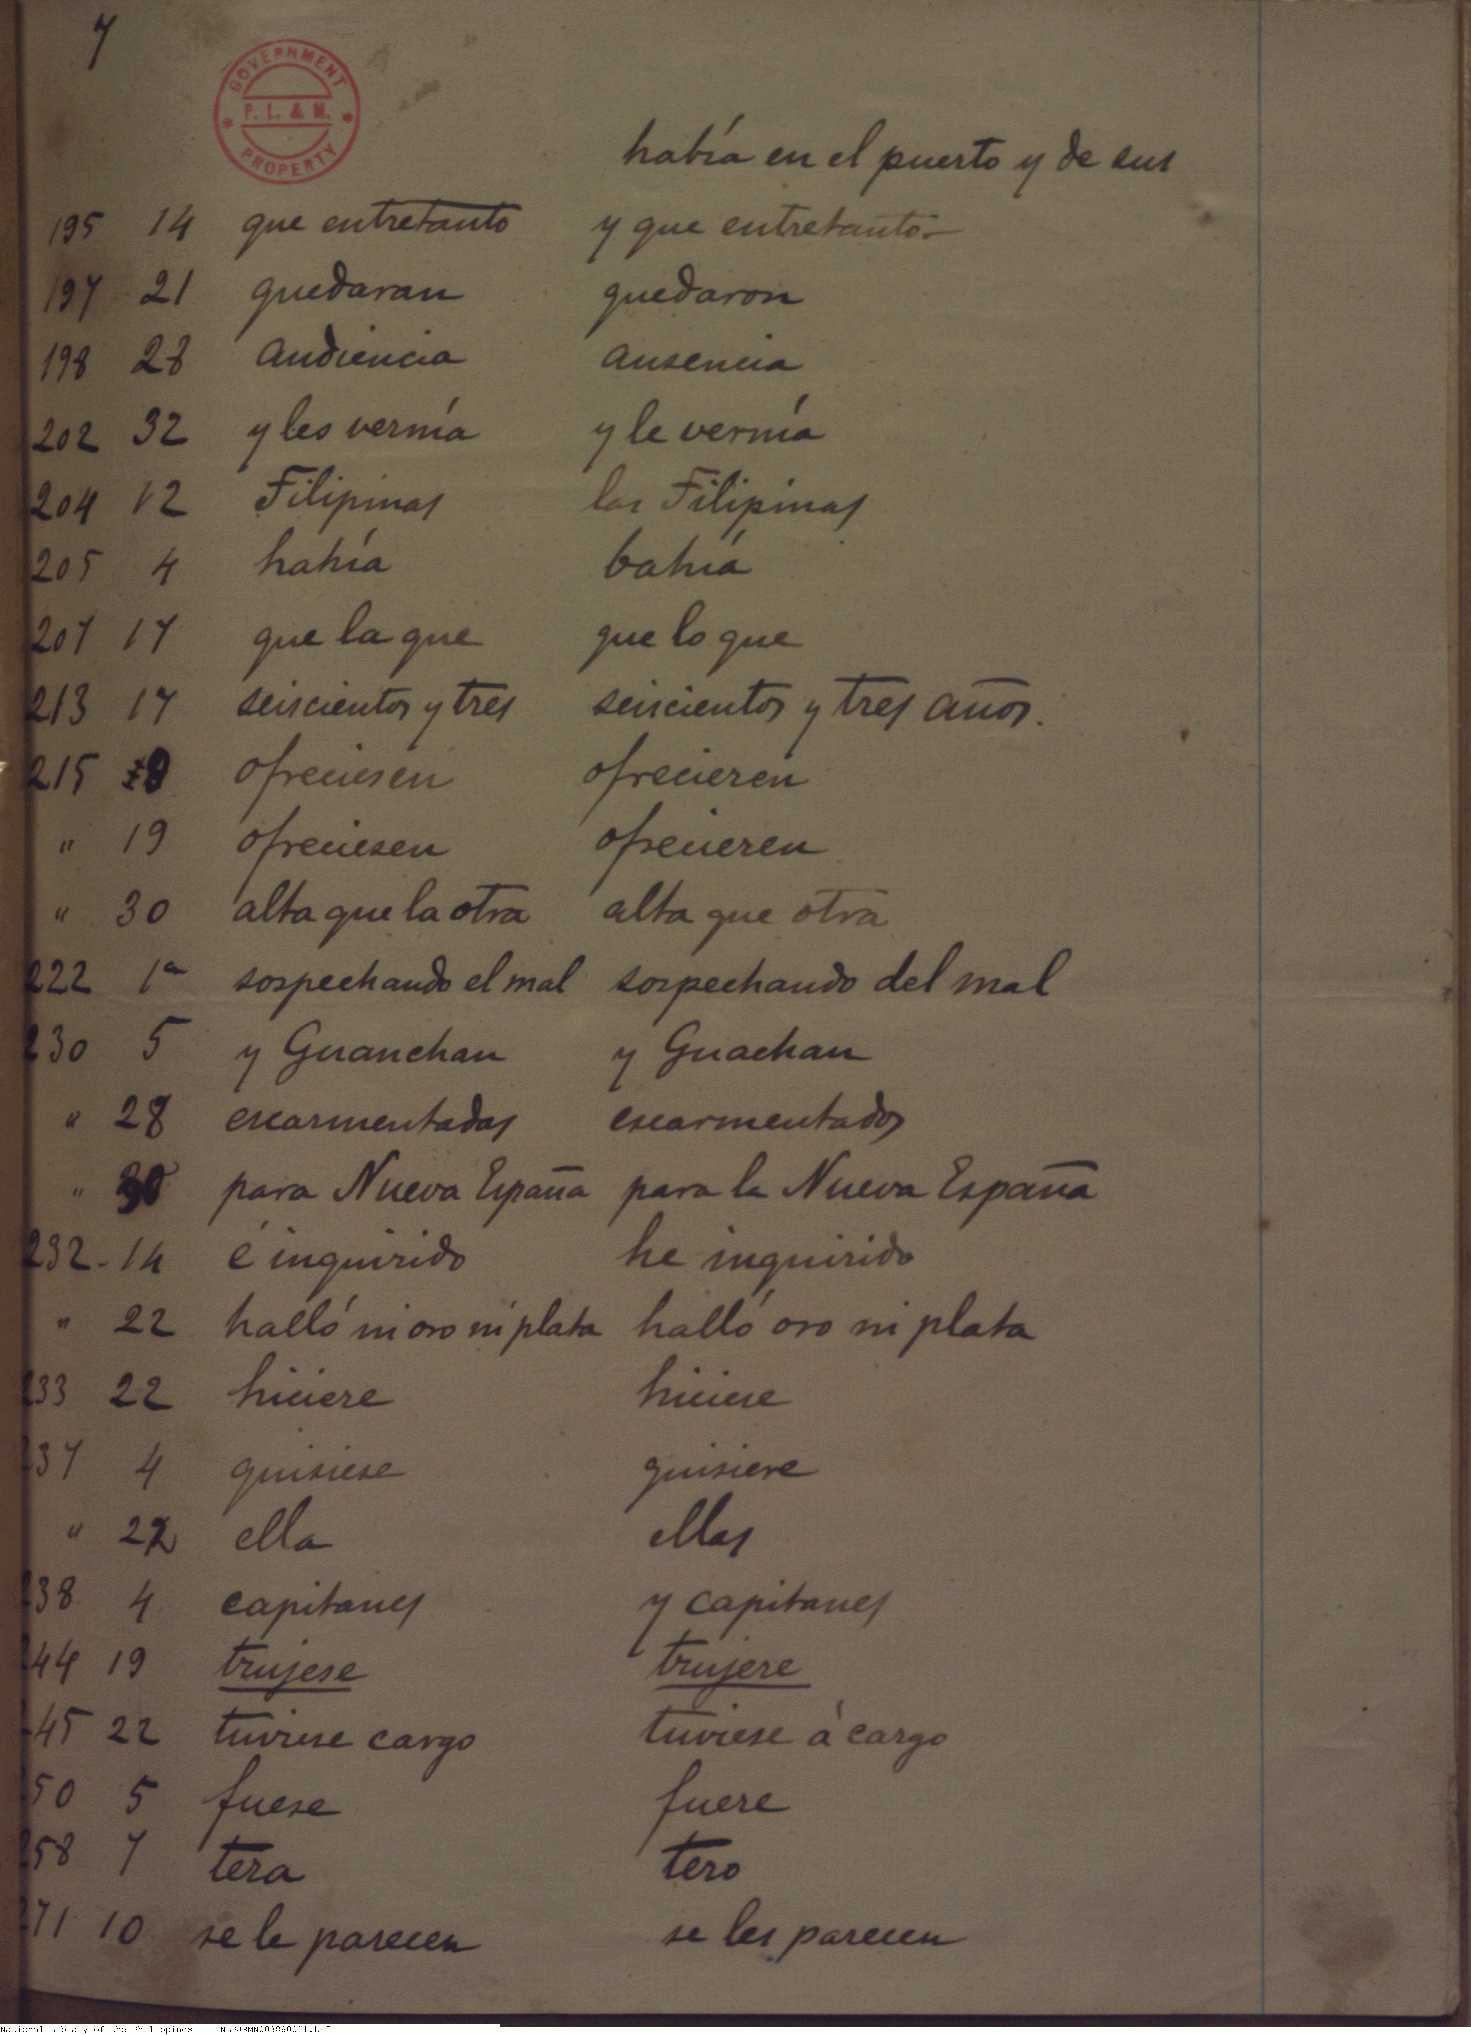 7
GOVERNMENT
P. L. & M.
PROPERTY
había en el puerto y de sus
195 14 que entretanto y que entretanto
197 21 quedaran quedaron
198 28 Audiencia ausencia
202 32 y les vernía y le vernía
204 12 Filipinas las Filipinas
205 4 hahía bahía
207 17 que la que que lo que
213 17 seiscientos y tres seiscientos y tres años.
215 ofreciesen ofrecieren
" 19 ofreciesen ofrecieren
" 30 alta que la otra alta que otra
222 1a sospechando el mal sospechando del mal
230 5 y Guanchan y Guachan
" 28 escarmentadas escarmentados
" 30 para Nueva España para la Nueva España
232 - 14 é inquirido he inquirido
" 22 halló ni oro ni plata halló oro ni plata
233 22 hiciere hiciese
237 4 quisiese quisiere
" 22 ella ellas
238 4 capitanes y capitanes
244 19 trujese trujere
245 22 tuviese cargo tuviese á cargo
250 5 fuese fuere
258 7 tera tero
271 10 se le parecen se les parecen
National Library of the Philippines